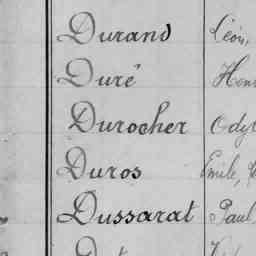 Durand Léon,
Duré
Durocher
Duros Emile,
Dussarat Paul